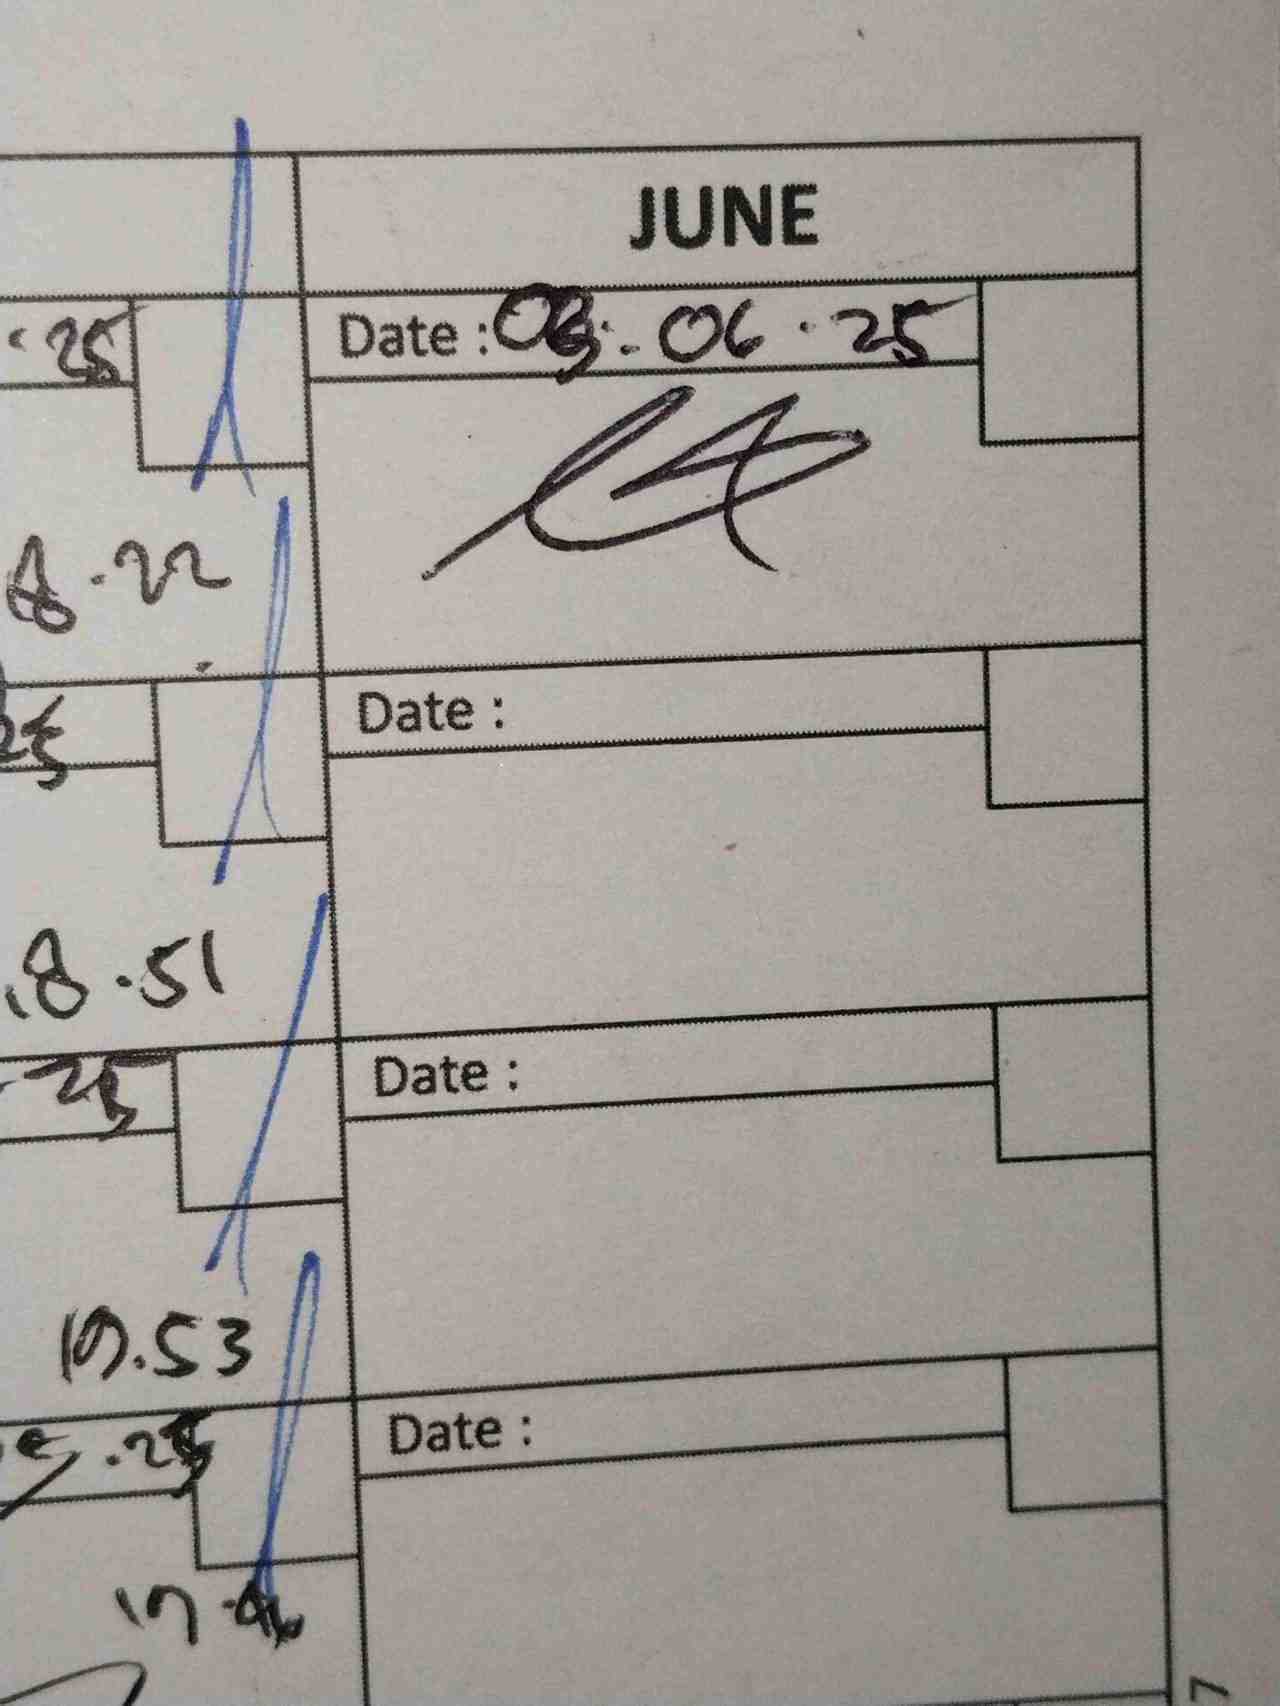 JUNE
.25
Date : 03.06.25
18.22
Date :
25
18.51
Date :
.25
19.53
Date :
05.25
17.46
7